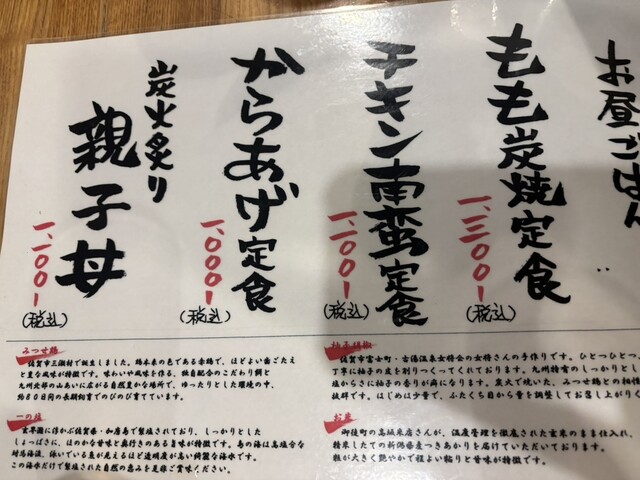 お昼ごはん
もも炭焼定食
一、三〇〇-
(税込)
チキン南蛮定食
一、二〇〇-
(税込)
からあげ定食
一、〇〇〇-
(税込)
炭火炙り
親子丼
一、二〇〇-
(税込)
みつせ鶏
佐賀市三瀬村で誕生しました。鶏本来の色である赤鶏で、ほどよい歯ごたえ
と豊な風味が特徴です。味わいや風味を作る、独自配合のこだわり餌と
九州北部の山あいに広がる自然豊かな場所で、ゆったりとした環境の中、
約80日間の長期飼育でのびのび育てています。
一の塩
玄界灘に浮かぶ佐賀県・加唐島で製塩されており、しっかりとした
しょっぱさに、ほのかな甘味と奥行きのある旨味が特徴です。島の海は高塩分な
対馬海流、泳いでいる魚が見えるほど透明度が高い綺麗な海水です。
この海水だけで製塩された自然の恵みを是非ご賞味ください。
柚子胡椒
佐賀市富士町・古湯温泉女将会の女将さんの手作りです。ひとつひとつ、
丁寧に柚子の皮を削りつくってくれております。九州特有のしっかりとし
塩からさに柚子の香りが高になります。炭火で焼いた、みつせ鶏との相性
抜群です。はじめは少量で、ふたくち目から量を調整してお召し上がりく
お米
御徒町の高城米店さんが、温度管理を徹底された玄米のまま仕入れ、
精米したての新潟県産つきあかりを届けていただいております。
粒が大きく艶やかで程よい粘りと甘味が特徴です。